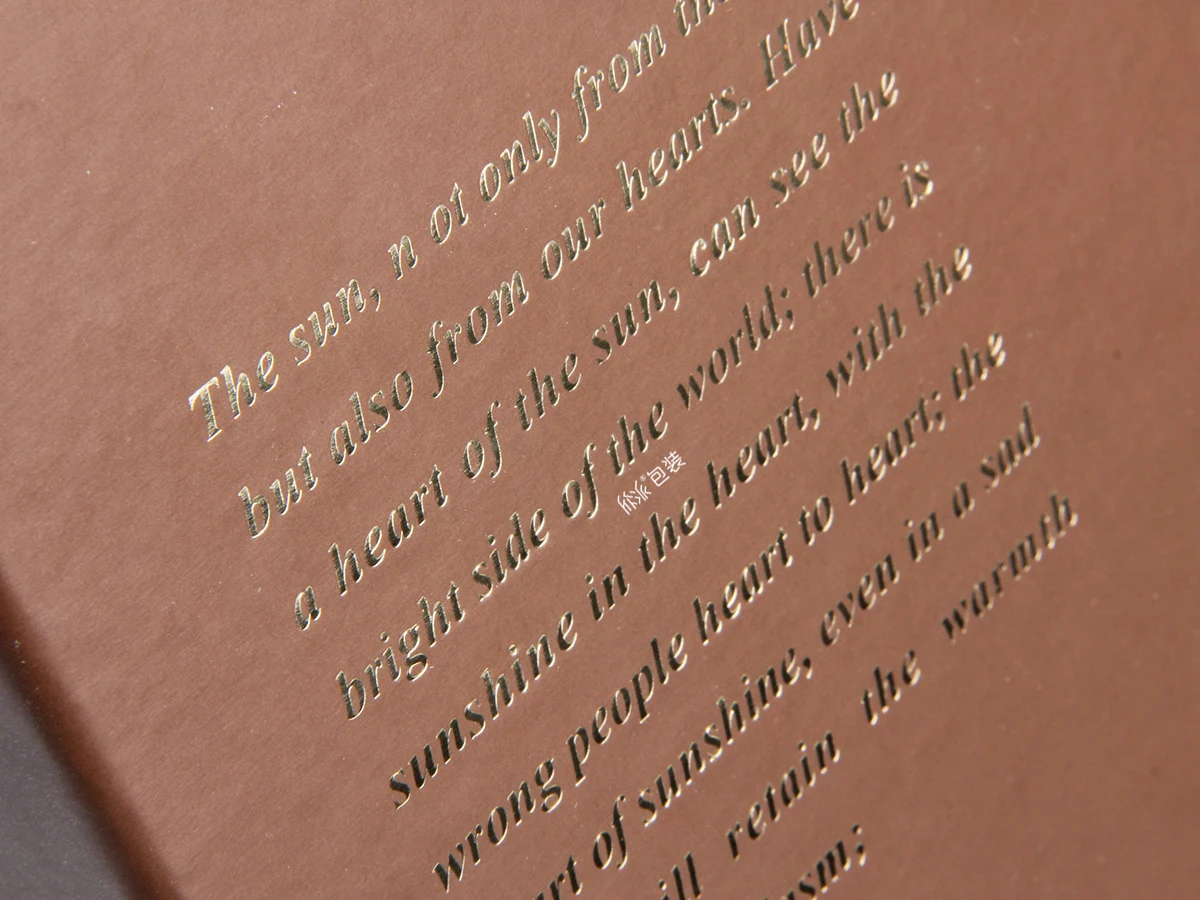 The sun, n ot only from the
but also from our hearts. Have
a heart of the sun, can see the
bright side of the world; there is
sunshine in the heart, with the
wrong people heart to heart; the
of sunshine, even in a sad
retain the warmth
包装